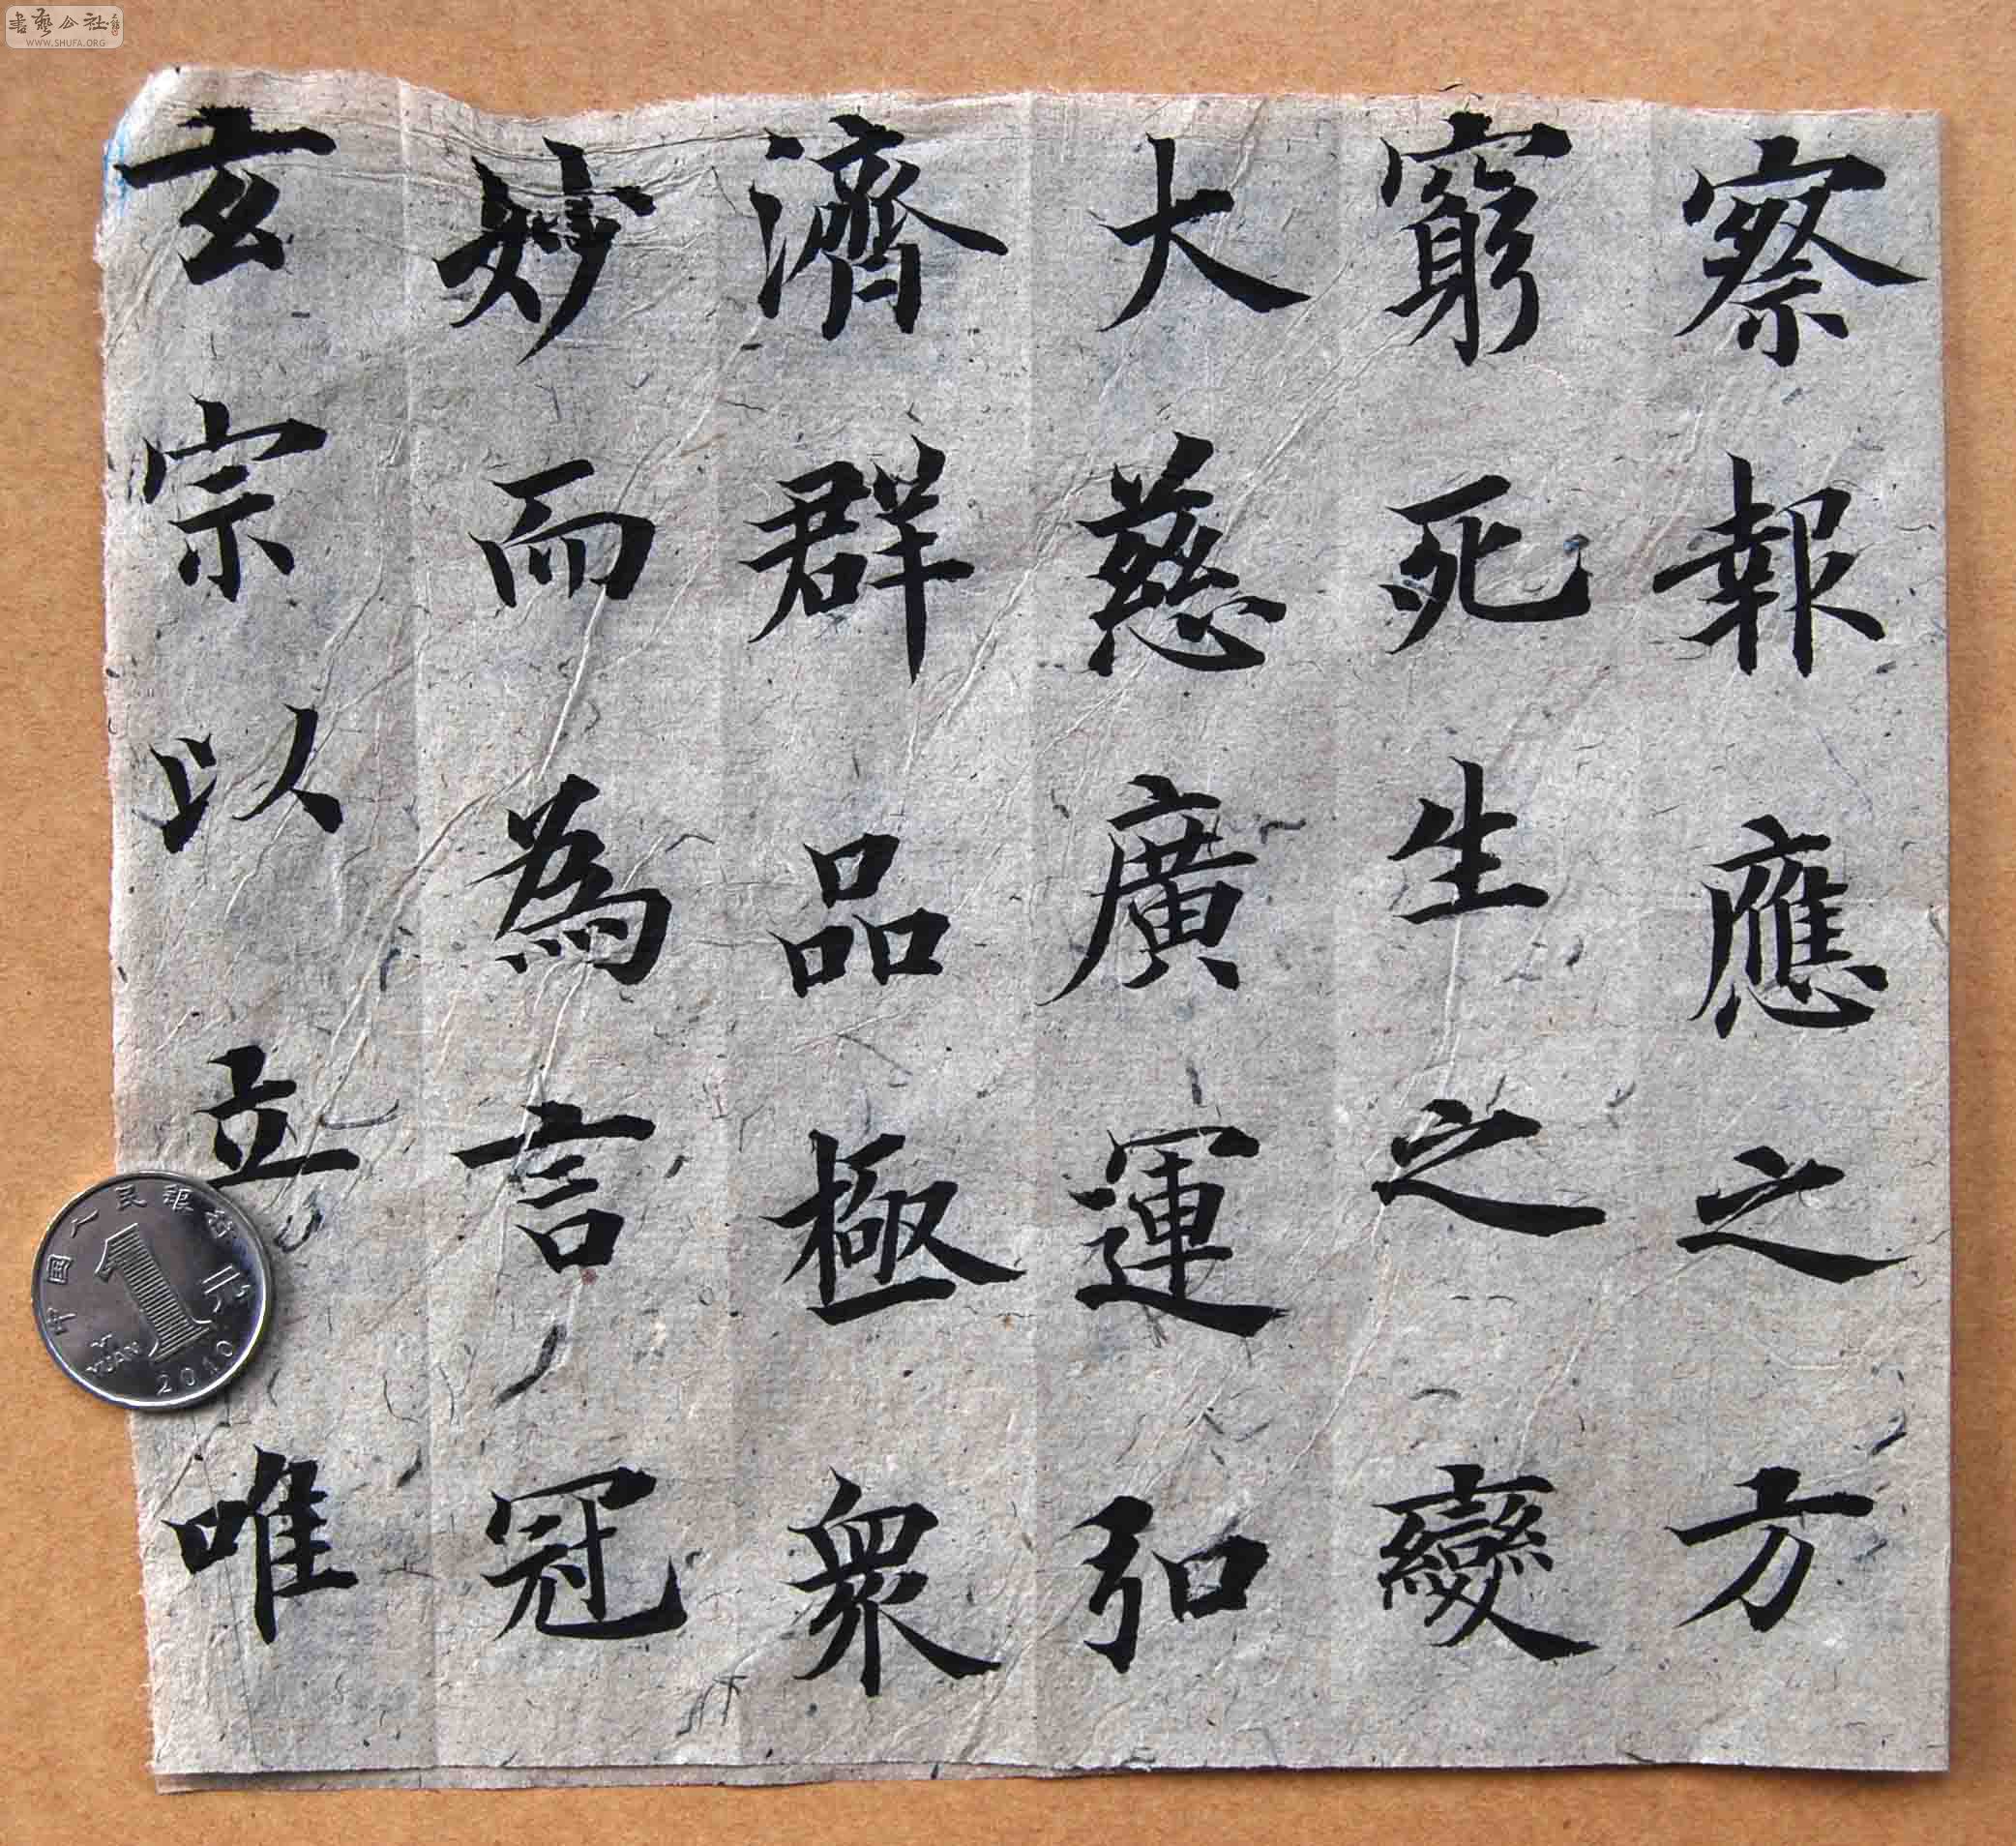 察報應之方
窮死生之變
大慈廣運弘
濟群品極衆
妙而為言冠
玄宗以立唯
中国人民银行
1
元
YI YUAN
2010
書藝公社
WWW.SHUFA.ORG